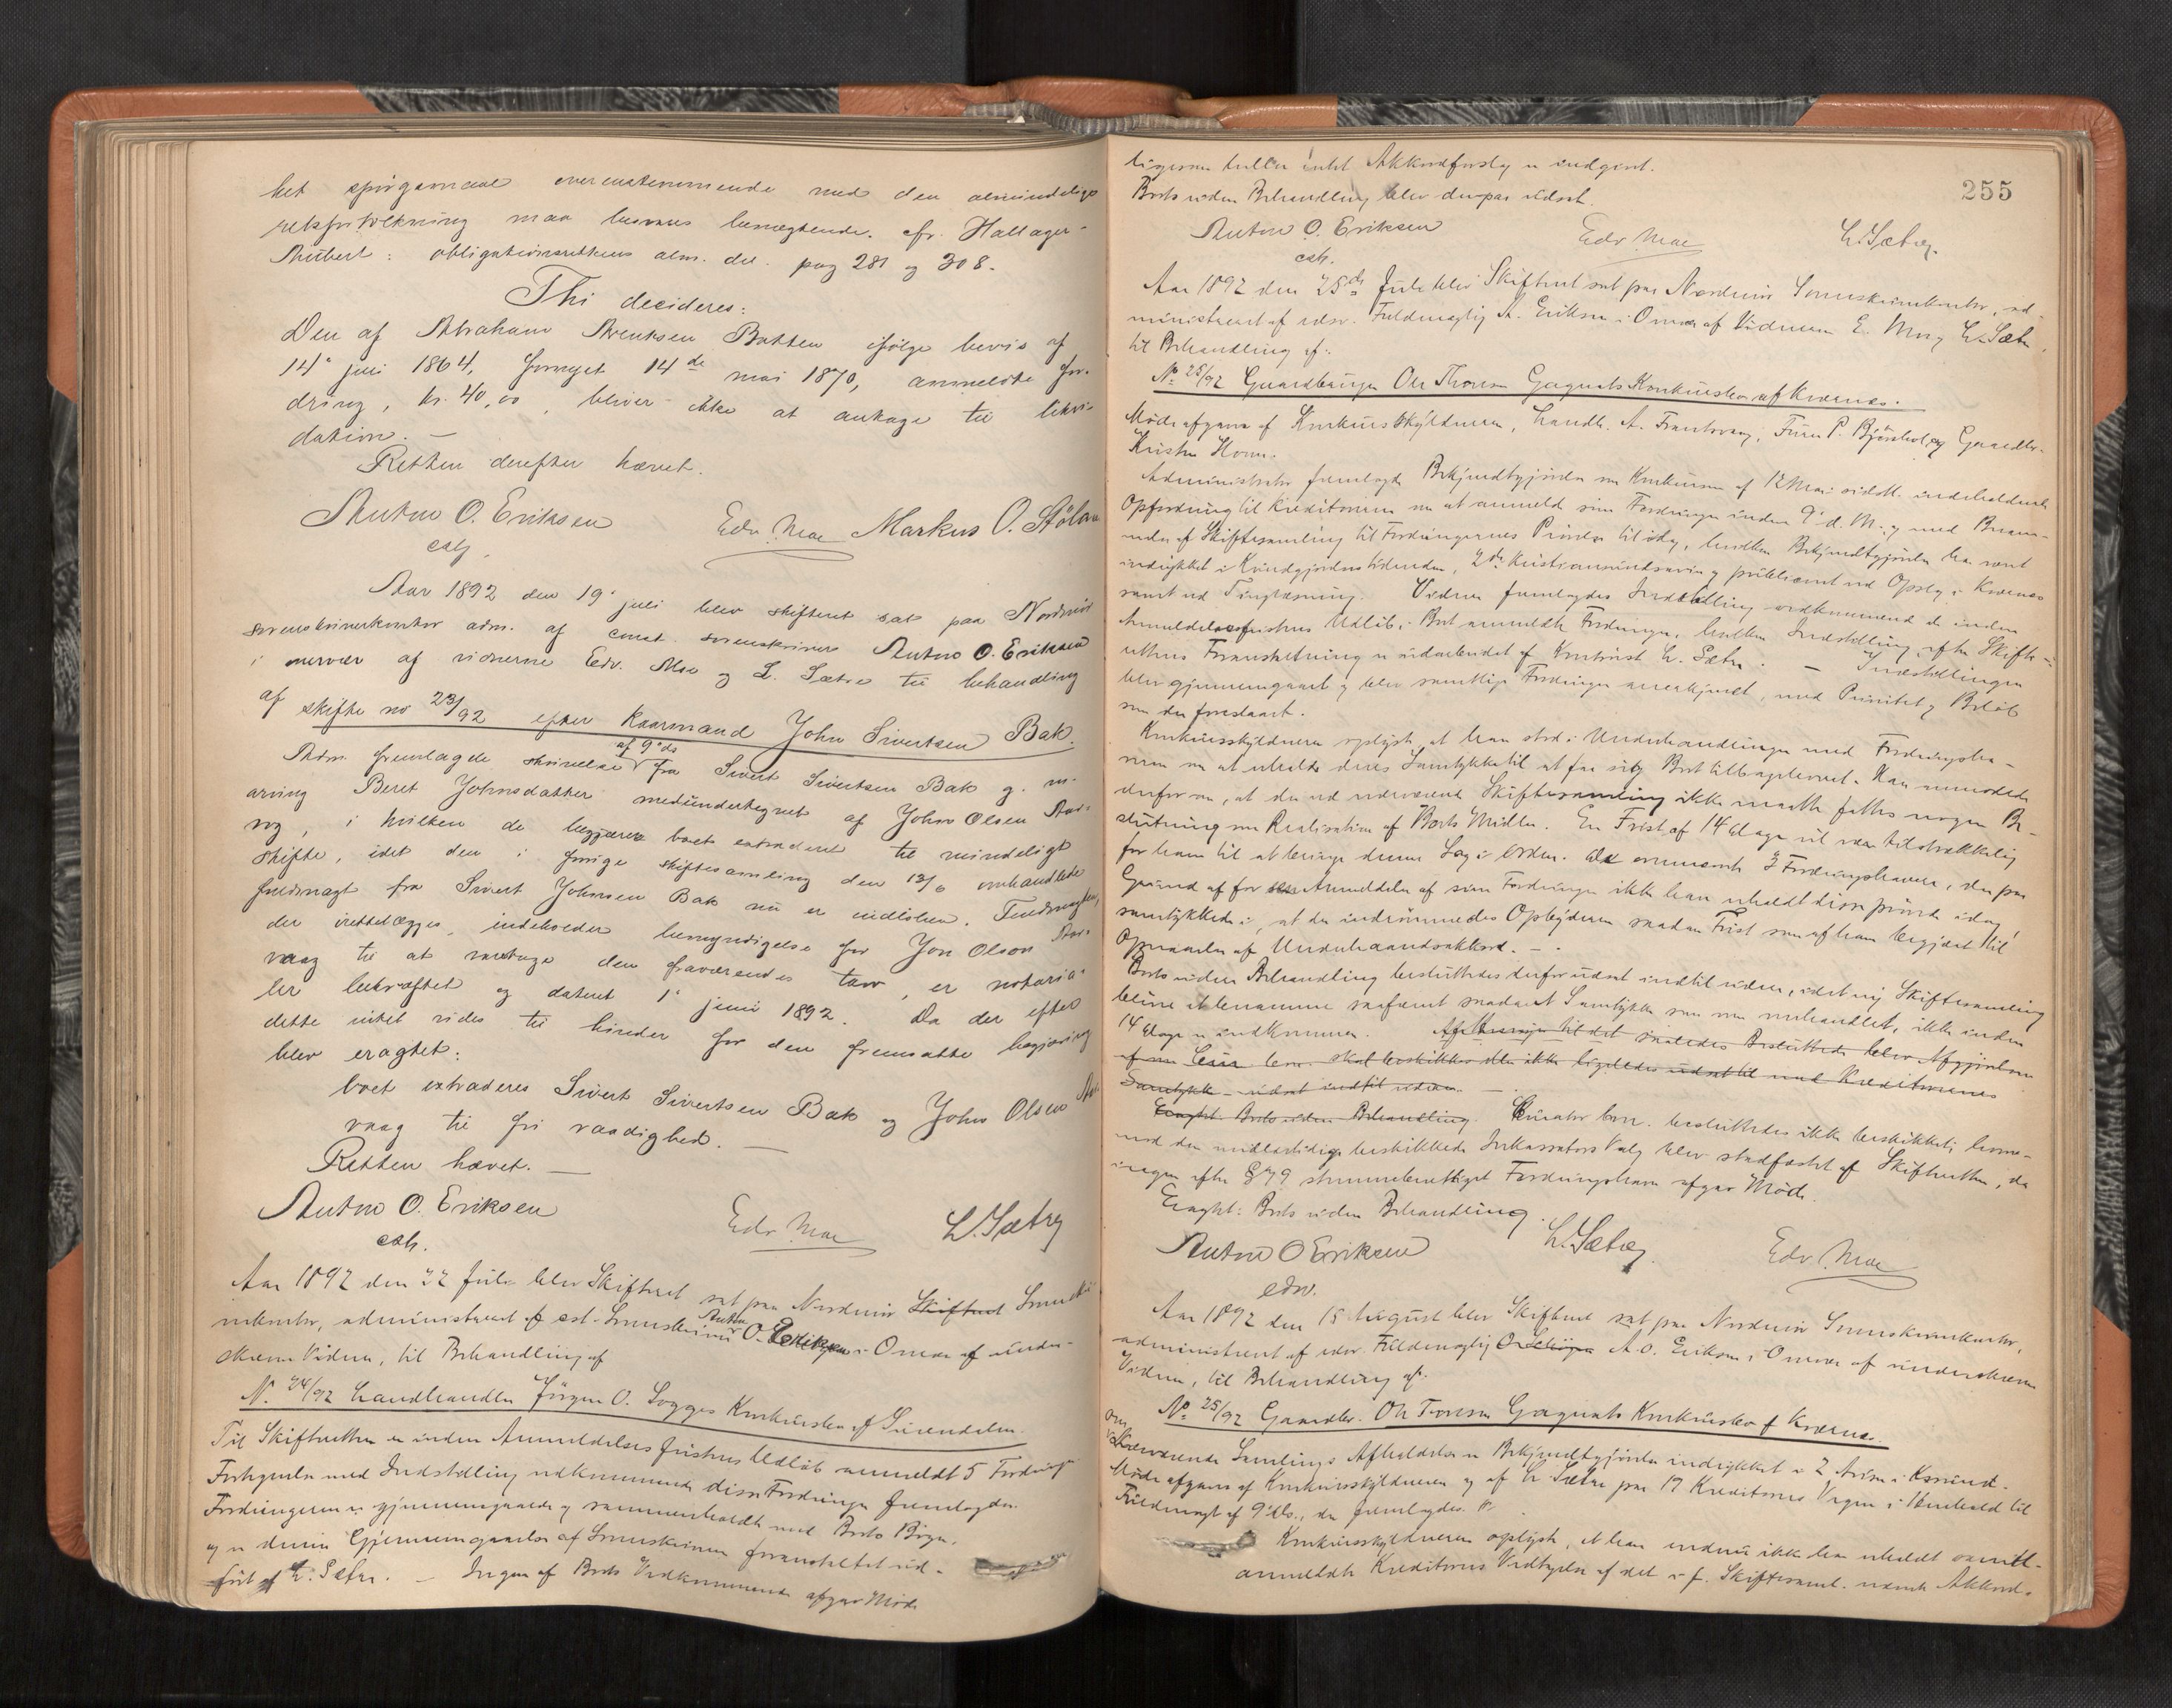 het spørgsmaal overensstemmende med den almindelige
retsfortolkning maa besvares benegtende. cfr. Hallager-
Aubert: obligationsrettens alm. del. pag 281 og 308.
Thi decideres:
Den af Abraham Arentsen Bakken ifølge bevis af
14 juli 1864, fornyet 14de mai 1870, anmeldte for-
dring, kr. 40,00, bliver ikke at antage til likvi-
dation. —
Retten derefter hævet.
Anton O. Eriksen
cst.
Edv. Moe Markus O. Stølan
Aar 1892 den 19 juli blev skifteret sat paa Nordmør
sorenskriverkontor adm. af const. sorenskriver Anton O. Eriksen
i nærvær af vidnerne Edv. Moe og L. Sætre til behandling
af skifte no 23/92 efter kaarmand John Sivertsen Bak.
Adm. fremlagde skrivelse af 9 ds fra Sivert Sivertsen Bak g. m.
arving Beret Johnsdatter medundertegnet af John Olsen Aar-
vog, i hvilken de begjærer boet extraderet til mindeligt
skifte, idet den i forrige skiftesamling den 13/6 omhandlede
fuldmagt fra Sivert Johnsen Bak nu er indløben. Fuldmagten,
der irettelægges, indeholder bemyndigelse for Jon Olson Aar-
vaag til at varetage den fraværendes tarv, er notaria-
ler bekræftet og dateret 1 juni 1892. Da der efter
dette intet vides til hinder for den fremsatte begjæring
blev eragtet:
boet extraderes Sivert Sivertsen Bak og John Olsen Aar-
vaag til fri raadighed. —
Retten hævet. —
Anton O. Eriksen
cst.
Edv. Moe L. Sætre
Aar 1892 den 22 Juli blev Skifteret sat paa Nordmør Skifteret Sorenskri-
verkontor, administreret af cst. Sorenskriver Anton O. Eriksen i Overvær af under-
skrevne Vidner, til Behandling af
No 24/92 Landhandler Jørgen O. Sogges Konkursbo af Surendalen.
Til Skifteretten er inden Anmeldelsesfristens Udløb anmeldt 5 Fordringer
Fortegnelse med Indstilling vedkommende disse Fordringer fremlagdes.
Fordringerne er gjennemgaaede og sammenholdte med Boets Bøger,
og er denne Gjennemgaaelse af Sorenskriveren foranstaltet ud-
ført af L. Sætre. — Ingen af Boets Vedkommende afgav Møde
255
ligesom heller intet Akkordforslag er indgivet.
Boets videre Behandling blev derpaa udsat.
Anton O. Eriksen
cst.
Edv. Moe L. Sætre.
Aar 1892 den 25de Juli blev Skifteret sat paa Nordmør Sorenskriverkontor, ad-
ministreret af edsv. Fuldmægtig A. Eriksen i Overvær af Vidnerne E. Moe og L. Sætre,
til Behandling af:
No 25/92 Gaardbruger Ole Thoresen Gagnats Konkursbo af Kvernes.
Møde afgaves af Konkursskyldneren, Landh. A. Frantsvaag, Furer P. Bjørshol, og Gaardbr.
Kristen Horn.
Administrator fremlagde Bekjendtgjørelse om Konkursen af 12 Mai sidstl. indeholdende
Opfordring til Kreditorerne om at anmelde sine Fordringer inden 9 d. M. og med Beram-
melse af Skiftesamling til Fordringernes Prøvelse til idag, hvilken Bekjendtgjørelse har været
indrykket i Kundgjørelsestidenden, 2de Kristiansundsaviser og publiceret ved Opslag i Kvernes
samt ved Tinglæsning. Videre fremlagdes Indstilling vedkommende de inden
Anmeldelsesfristens Udløb i Boet anmeldte Fordringer, hvilken Indstilling efter Skifte-
rettens Foranstaltning er udarbeidet af Kontorist L. Sætre. — Indstillingen
blev gjennemgaaet og blev samtlige Fordringer anerkjendt, med Prioritet og Beløb
som der foreslaaet.
Konkursskyldneren oplyste, at han stod i Underhandlinger med Fordringsha-
verne om at erholde deres Samtykke til at faa sig Boet tilbageleveret. Han anmodede
derfor om, at der ved nærværende Skiftesamling ikke maatte fattes nogen Be-
slutning om Realisation af Boets Midler. En Frist af 14 Dage vil være tilstrækkelig
for ham til at bringe denne Sag i Orden. De ovennævnte 3 Fordringshavere, der paa
Grund af for sen Anmeldelse af sine Fordringer ikke har erholdt disse prøvede idag,
samtykkede i, at der indrømmedes Opbyderen saadan Frist som af ham begjært til
Opnaaelse af Underhaandsakkord. —
Boets videre Behandling besluttedes derfor udsat indtil videre, idet ny Skiftesamling
bliver at berammes saafremt saadant Samtykke som omhandlet, ikke inden
14 Dage er indkommen. Af Hensyn til det saaledes Besluttede blev Afgjørelsen
af om Curator bon. skal beskikkes eller ikke ligeledes udsat til med Kreditorernes
Samtykke – udsat indtil videre. —
Eragtet: Boets videre Behandling. Curator bon. besluttedes ikke beskikket; hvori-
mod den midlertidige beskikkede Inkassators Valg blev stadfæstet af Skifteretten, da
ingen efter § 79 stemmeberettiget Fordringshaver afgav Møde.
Eragtet: Boets videre Behandling.
Anton O Eriksen
edsv.
L. Sætre. Edv. Moe
Aar 1892 den 15 August blev Skifteret sat paa Nordmør Sorenskriverkontor,
administreret af edsv. Fuldmægtig A. O. Eriksen i Overvær af underskrevne
Vidner, til Behandling af:
No 25/92 Gaardbr. Ole Toresen Gagnats Konkursbo af Kvernes.
Om nærværende Samlings Afholdelse er Bekjendtgjørelse indrykket i 2 Aviser i Krsund.
Møde afgaves af Konkursskyldneren og af L. Sætre paa 17 Kreditorers Vegne i Henhold til
Fuldmagt af 9 ds., der fremlagdes.
Konkursskyldneren oplyste, at han endnu ikke har erholdt samtl.
anmeldte Kreditorers Vedtagelse af det i f. Skiftesaml. nævnte Akkord-